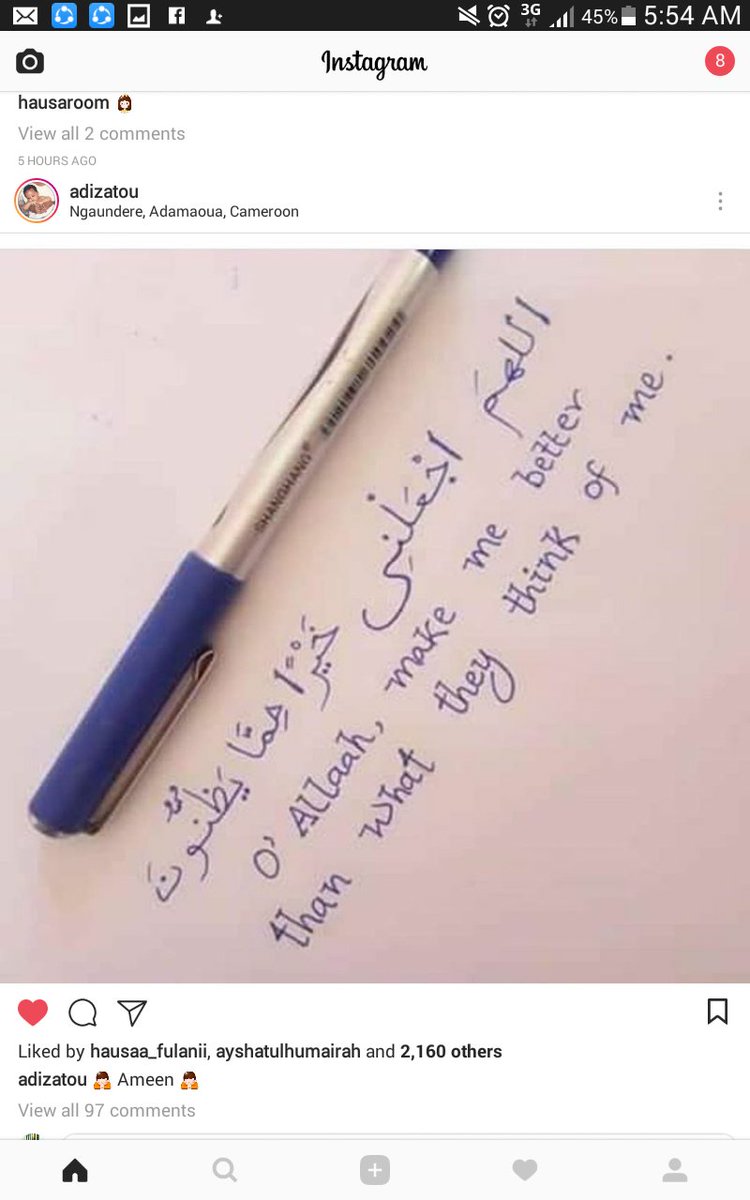 3G 45% 5:54 AM
Instagram
8
hausaroom
View all 2 comments
5 HOURS AGO
adizatou
Ngaundere, Adamaoua, Cameroon
SHANGHANG
اللهمَّ اجْعَلْنِي خَيْرًا مِمَّا يَظُنُّونَ
O' Allaah, make me better
than what they think of me.
Liked by hausaa_fulanii, ayshatulhumairah and 2,160 others
adizatou 🙏 Ameen 🙏
View all 97 comments